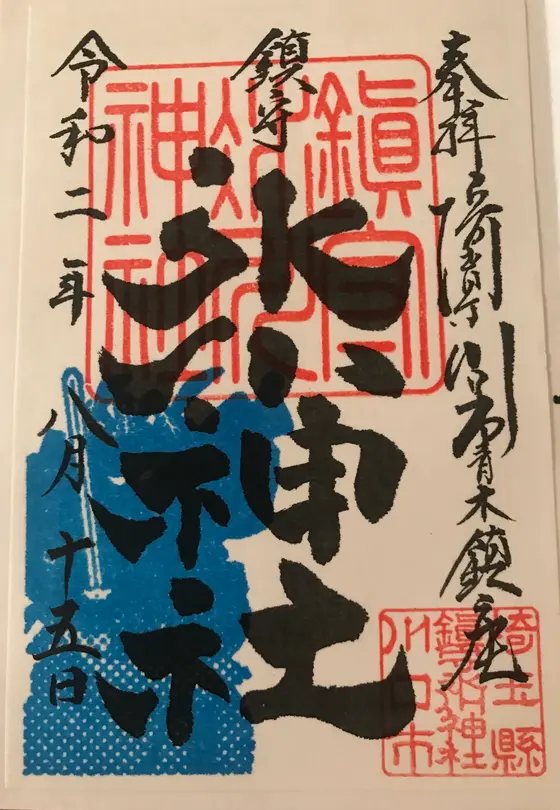 奉拝 埼玉県川口市青木鎮座
鎮守
氷川神社
令和二年八月十五日
鎭守
氷川
神社
埼玉縣
川口市